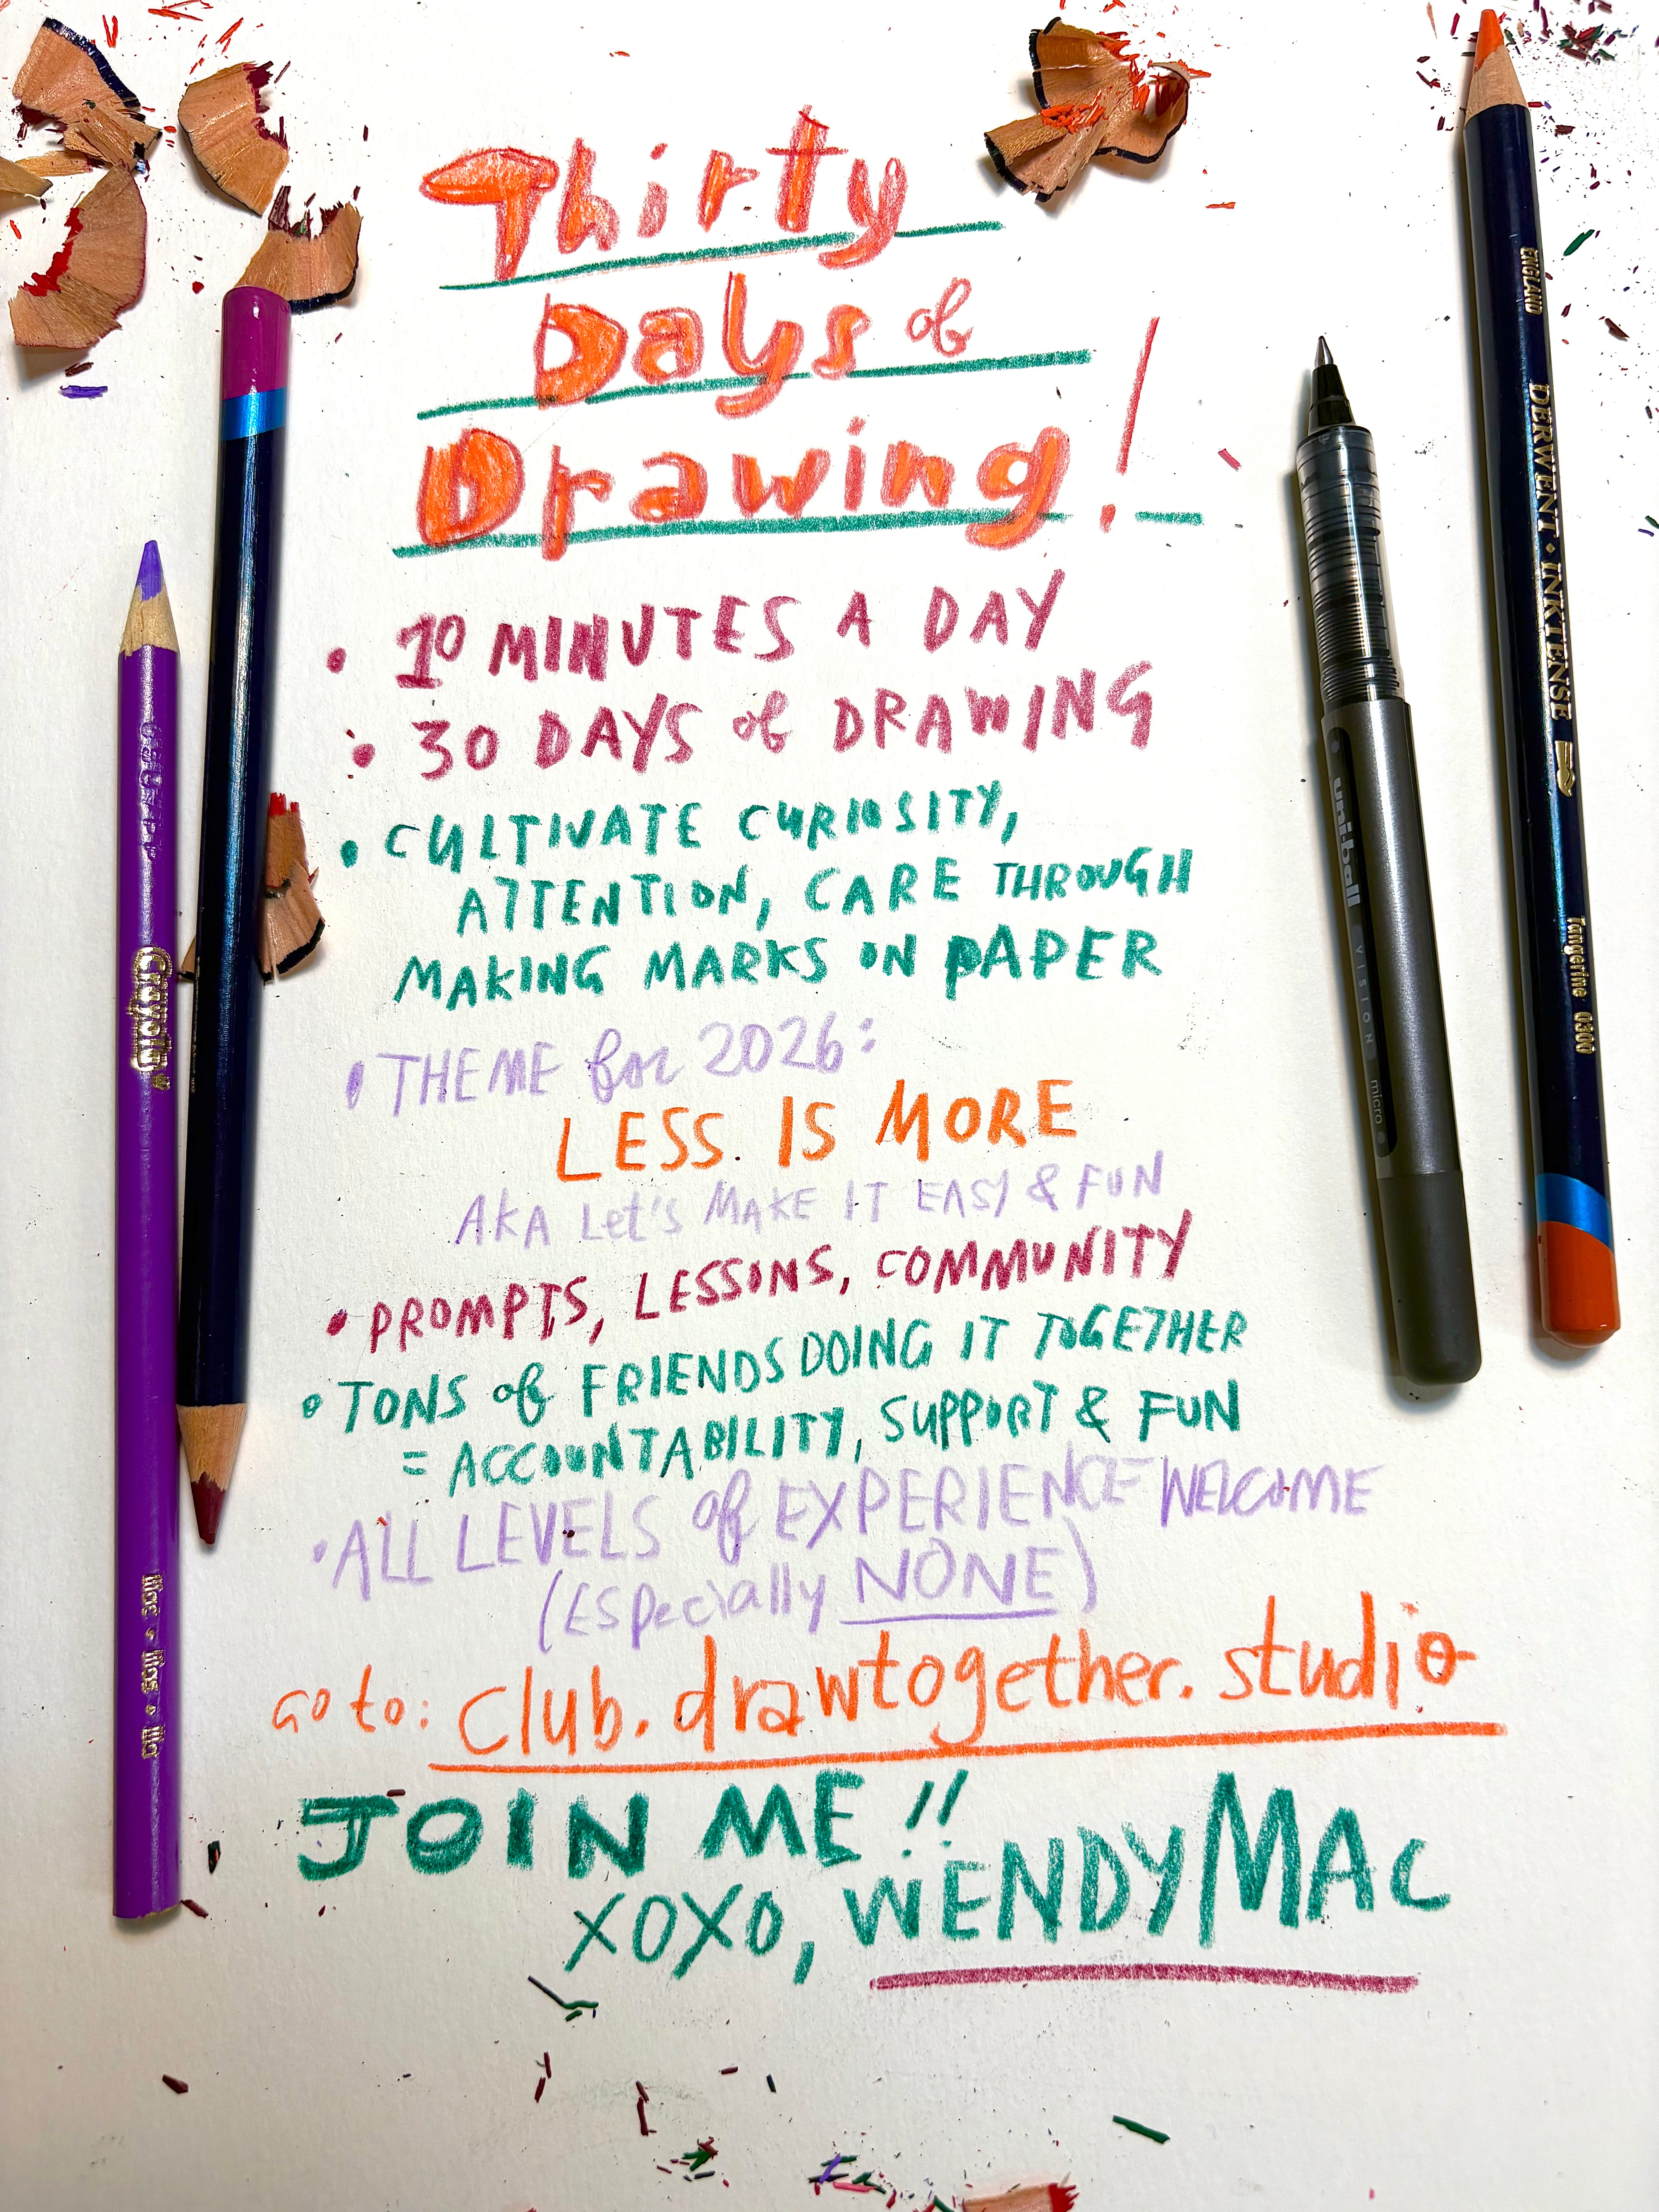 Thirty
Days of
Drawing!
• 10 MINUTES A DAY
• 30 DAYS of DRAWING
• CULTIVATE CURIOSITY,
ATTENTION, CARE THROUGH
MAKING MARKS ON PAPER
• THEME for 2026:
LESS IS MORE
AKA Let's MAKE IT EASY & FUN
• PROMPTS, LESSONS, COMMUNITY
• TONS of FRIENDS DOING IT TOGETHER
= ACCOUNTABILITY, SUPPORT & FUN
• ALL LEVELS of EXPERIENCE WELCOME
(Especially NONE)
go to: club.drawtogether.studio
JOIN ME!!
XOXO, WENDYMAC
Crayola
lilac • lilas • lila
uni-ball VISION micro
ENGLAND DERWENT • INKTENSE Tangerine 0300